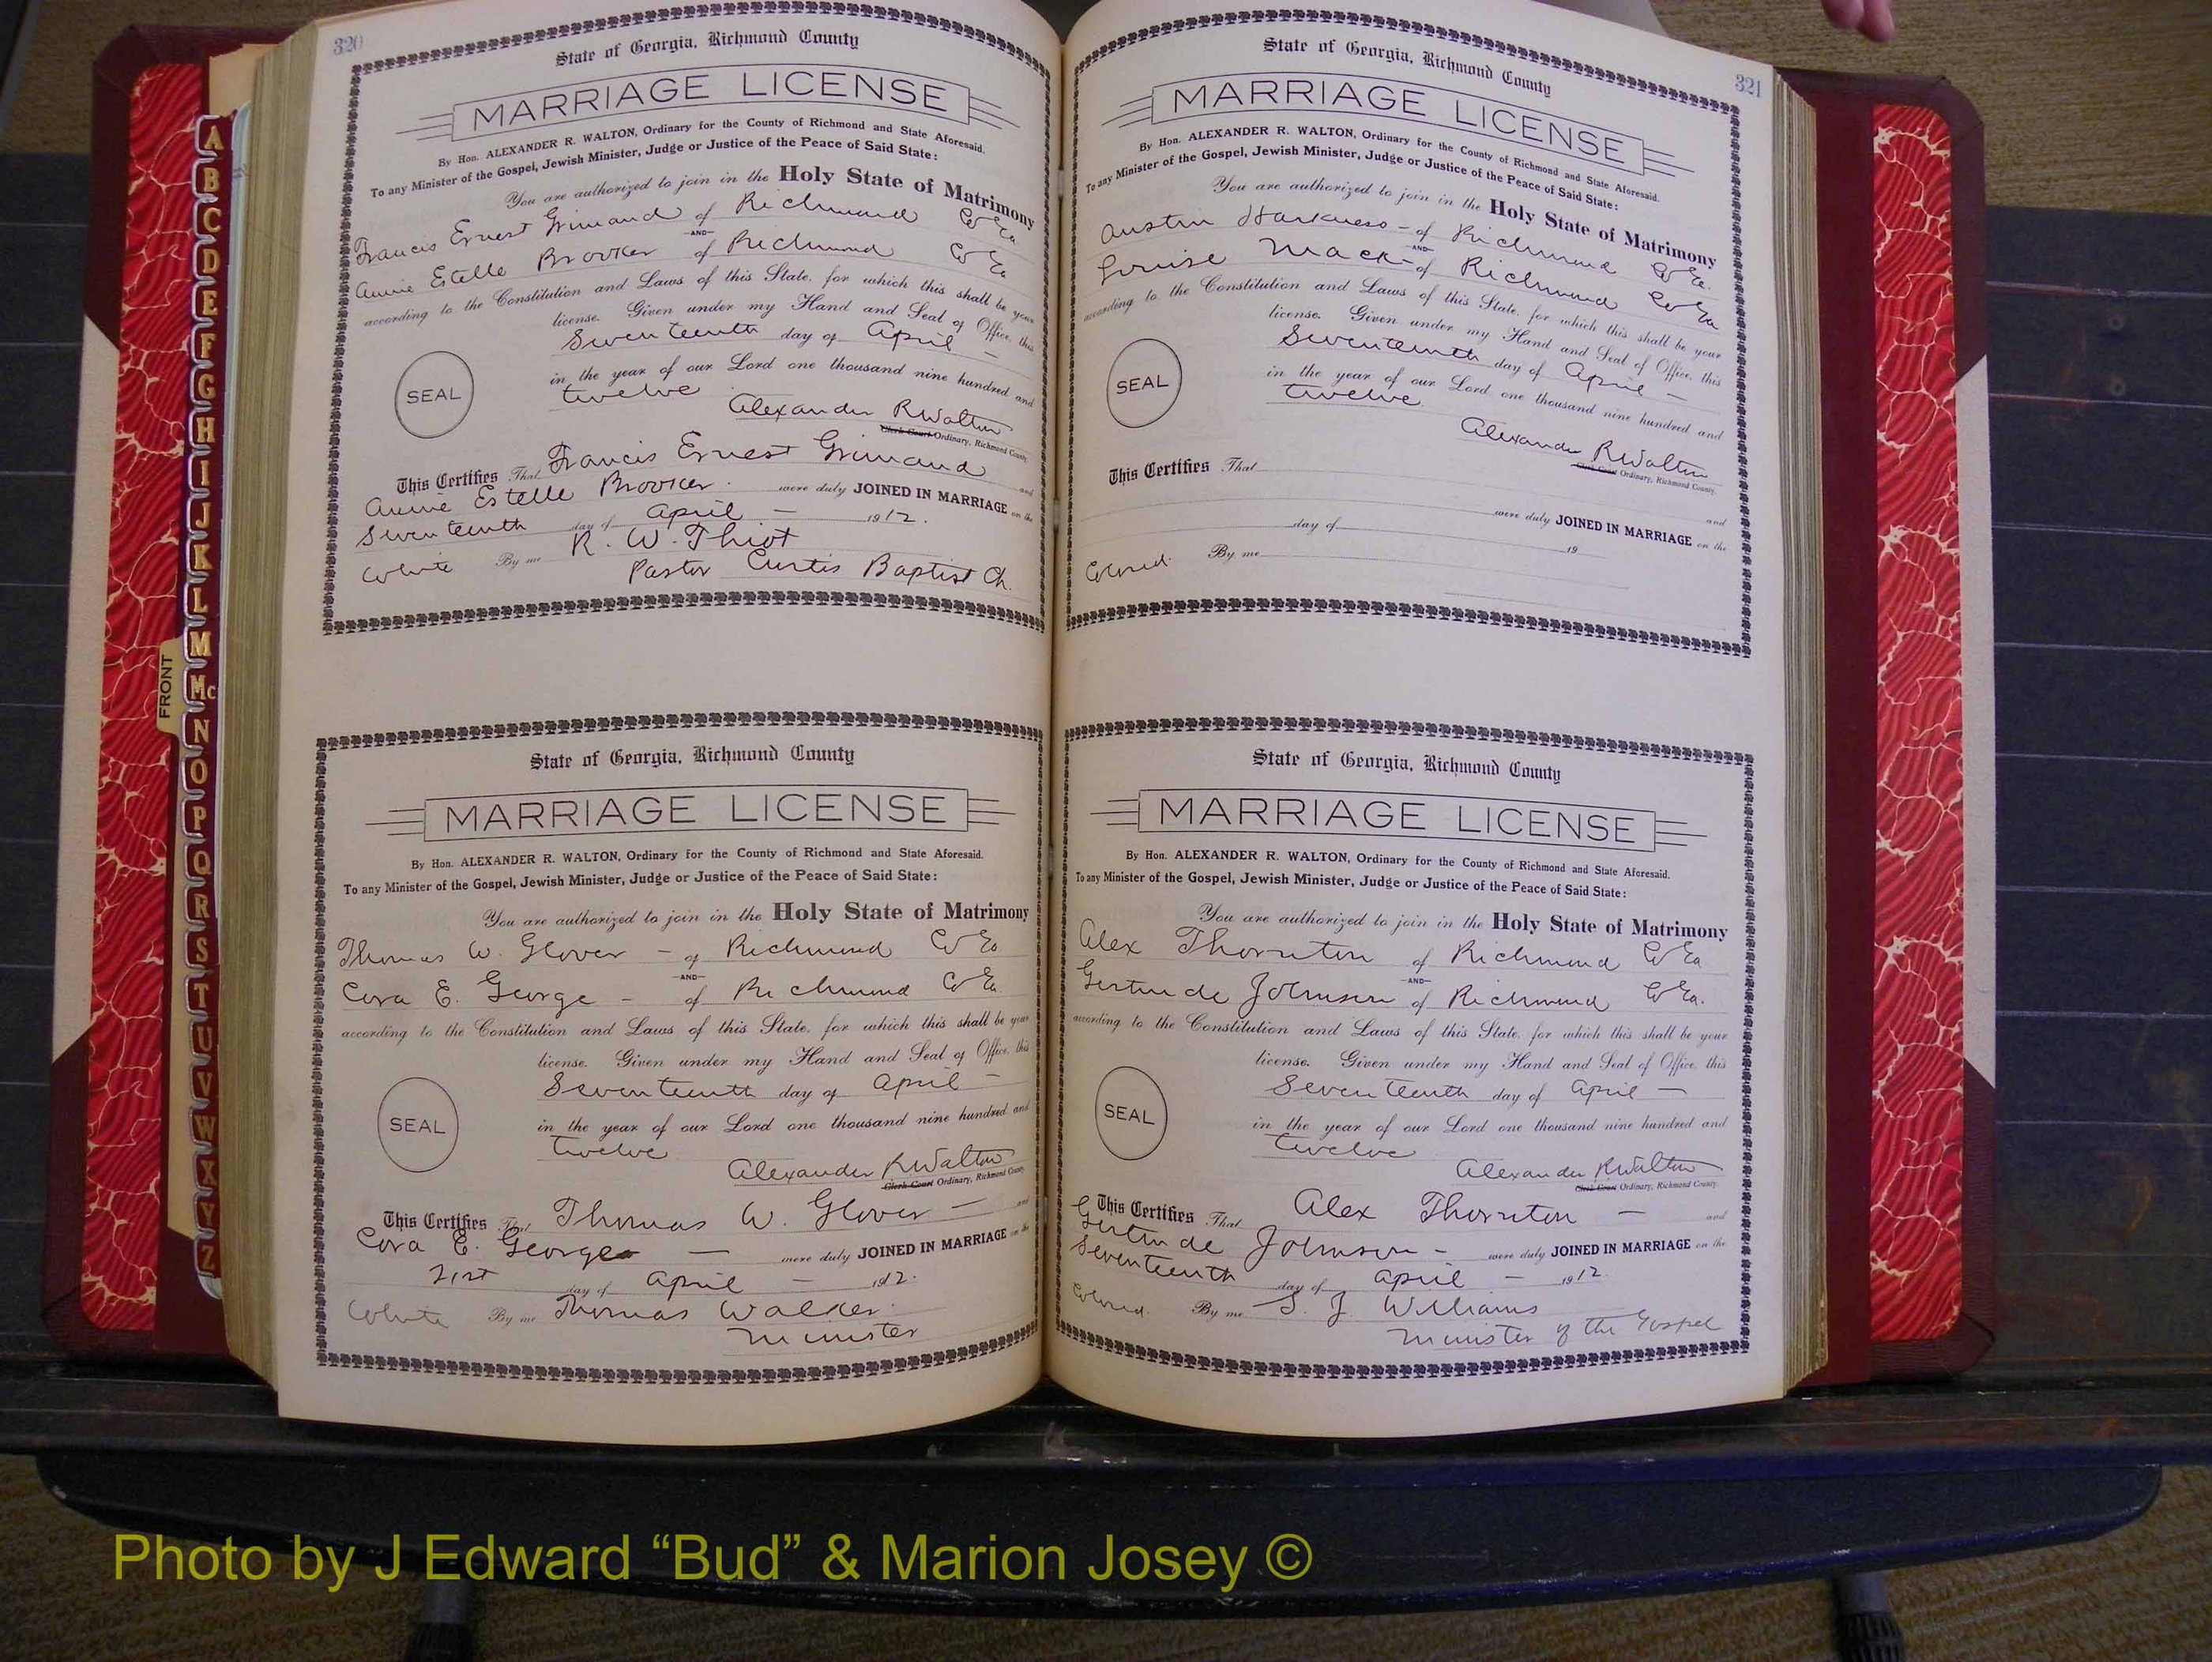 A
B
C
D
E
F
G
H
I
J
K
L
M
Mc
N
O
P
Q
R
S
T
U
V
W
X
Y
Z
FRONT
320
State of Georgia, Richmond County
MARRIAGE LICENSE
By Hon. ALEXANDER R. WALTON, Ordinary for the County of Richmond and State Aforesaid.
To any Minister of the Gospel, Jewish Minister, Judge or Justice of the Peace of Said State:
You are authorized to join in the Holy State of Matrimony
Francis Ernest Grimaud of Richmond Co Ga
AND
Annie Estelle Brooker of Richmond Co Ga
according to the Constitution and Laws of this State, for which this shall be your
license. Given under my Hand and Seal of Office, this
Seventeenth day of April -
SEAL
in the year of our Lord one thousand nine hundred and
twelve
Alexander R Walton
Clerk Court Ordinary, Richmond County
This Certifies That Francis Ernest Grimaud and
Annie Estelle Brooker. were duly JOINED IN MARRIAGE on the
Seventeenth day of April - 1912.
White By me R. W. Thiot
Pastor Curtis Baptist Ch.
State of Georgia, Richmond County
MARRIAGE LICENSE
By Hon. ALEXANDER R. WALTON, Ordinary for the County of Richmond and State Aforesaid.
To any Minister of the Gospel, Jewish Minister, Judge or Justice of the Peace of Said State:
You are authorized to join in the Holy State of Matrimony
Thomas W. Glover - of Richmond Co Ga
AND
Cora E. George - of Richmond Co Ga
according to the Constitution and Laws of this State, for which this shall be your
license. Given under my Hand and Seal of Office, this
Seventeenth day of April -
SEAL
in the year of our Lord one thousand nine hundred and
twelve
Alexander R Walton
Clerk Court Ordinary, Richmond County
This Certifies That Thomas W. Glover - and
Cora E. George - were duly JOINED IN MARRIAGE on the
21st day of April - 1912.
White By me Thomas Walker
Minister
321
State of Georgia, Richmond County
MARRIAGE LICENSE
By Hon. ALEXANDER R. WALTON, Ordinary for the County of Richmond and State Aforesaid.
To any Minister of the Gospel, Jewish Minister, Judge or Justice of the Peace of Said State:
You are authorized to join in the Holy State of Matrimony
Austin Harkness - of Richmond Co Ga.
AND
Louise Mack - of Richmond Co Ga
according to the Constitution and Laws of this State, for which this shall be your
license. Given under my Hand and Seal of Office, this
Seventeenth day of April -
SEAL
in the year of our Lord one thousand nine hundred and
twelve
Alexander R Walton
Clerk Court Ordinary, Richmond County.
This Certifies That
and
were duly JOINED IN MARRIAGE on the
day of 19
Colored. By me
State of Georgia, Richmond County
MARRIAGE LICENSE
By Hon. ALEXANDER R. WALTON, Ordinary for the County of Richmond and State Aforesaid.
To any Minister of the Gospel, Jewish Minister, Judge or Justice of the Peace of Said State:
You are authorized to join in the Holy State of Matrimony
Alex Thornton of Richmond Co Ga
AND
Gertrude Johnson of Richmond Co Ga.
according to the Constitution and Laws of this State, for which this shall be your
license. Given under my Hand and Seal of Office, this
Seventeenth day of April -
SEAL
in the year of our Lord one thousand nine hundred and
twelve
Alexander R Walton
Clerk Court Ordinary, Richmond County.
This Certifies That Alex Thornton - and
Gertrude Johnson - were duly JOINED IN MARRIAGE on the
Seventeenth day of April - 1912.
Colored. By me S. J. Williams
Minister of the Gospel
Photo by J Edward “Bud” & Marion Josey ©